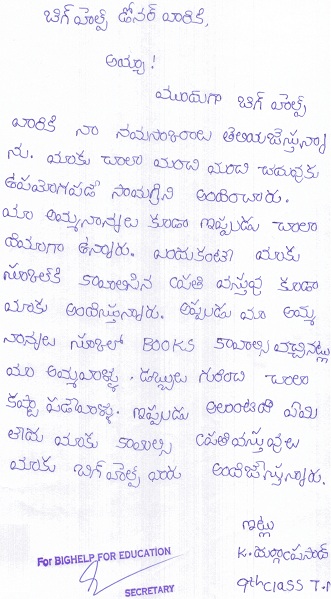 బిగ్ హెల్ప్ డోనర్ వారికి,
అయ్యా!
ముందుగా బిగ్ హెల్ప్
వారికి నా నమస్కారాలు తెలియజేస్తున్నా
ను. మాకు చాలా మంచి మంచి చదువుకు
ఉపయోగపడే సామగ్రిని అందించారు.
మా అమ్మనాన్నలు కూడా ఇప్పుడు చాలా
హాయిగా ఉన్నారు. ఎందుకంటే మాకు
స్కూల్‌కి కావాలసిన ప్రతి వస్తువు కూడా
మాకు అందిస్తున్నారు. అప్పుడు మా అమ్మ
నాన్నలు స్కూల్లో BOOKS కావాల్సి వచ్చినట్లు
మా అమ్మవాళ్ళు. డబ్బులు గురించి చాలా
కష్టా పడేవాళ్ళు. ఇప్పుడు అలాంటిదే ఏమి
లేదు మాకు కావాల్సి ప్రతివస్తువులు
మాకు బిగ్ హెల్ప్ వారు అందిజేస్తున్నారు.
ఇట్లు
K. దుర్గాప్రసాద్
9th class T.M
For BIGHELP FOR EDUCATION
SECRETARY